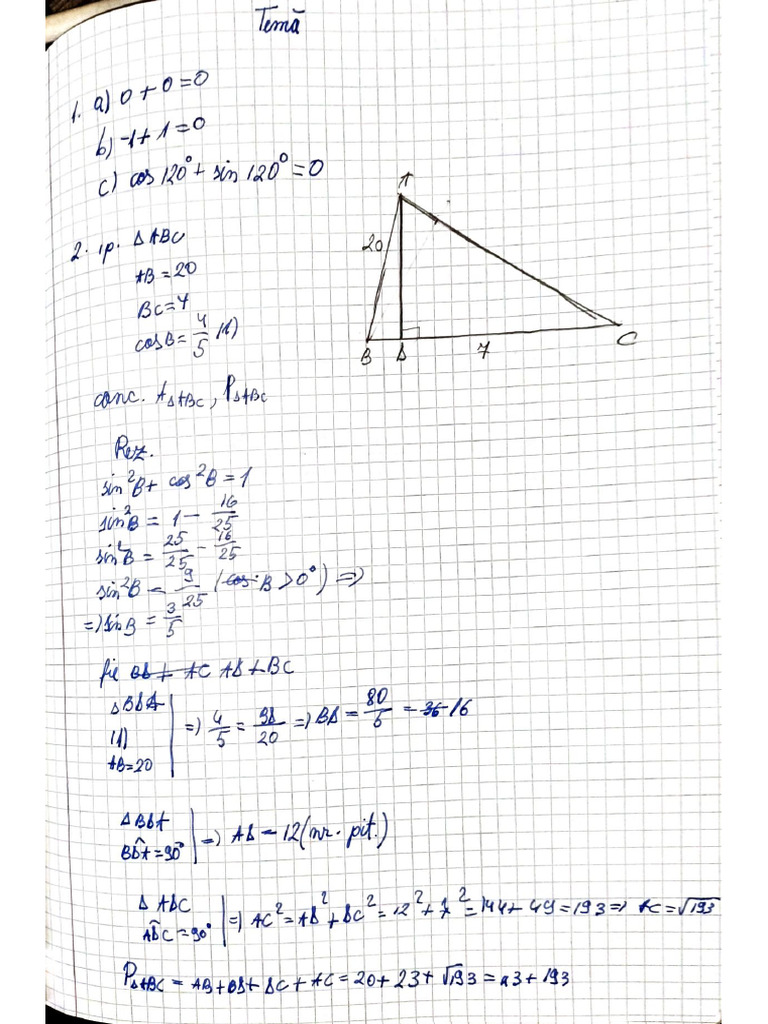 Temă
1. a) 0 + 0 = 0
b) -1 + 1 = 0
c) cos 120° + sin 120° = 0
2. ip. ΔABC
AB = 20
BC = 7
cos B = 4/5 (1)
conc. A ΔABC, P ΔABC
A
20
B D 7 C
Rez.
sin²B + cos²B = 1
sin²B = 1 - 16/25
sin²B = 25/25 - 16/25
sin²B = 9/25 (B > 0°) =>
=> sin B = 3/5
fie AD ⊥ BC
ΔBDA
(1)
AB = 20
=> 4/5 = BD/20 => BD = 80/5 = 16
ΔBDA
BDA = 90°
=> AD = 12 (nr. pit.)
ΔADC
ADC = 90°
=> AC² = AD² + DC² = 12² + 7² = 144 + 49 = 193 => AC = √193
P ΔABC = AB + BD + DC + AC = 20 + 23 + √193 = 23 + 193